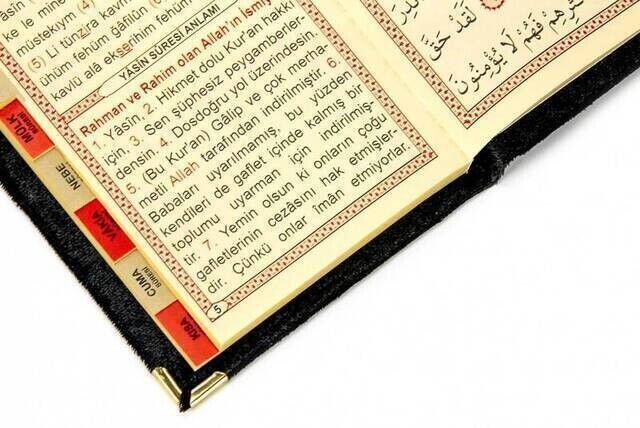 müstekıym (4)
(5) Li tünzira kavmen
ühüm fehüm ğâfilûn
kavlü alâ ekserihim fehüm
YÂSİN SÛRESİ ANLAMI
Rahman ve Rahim olan Allah'ın İsmiy
1. Yâsîn. 2. Hikmet dolu Kur'an hakkı
için. 3. Sen şüphesiz peygamberler-
densin. 4. Dosdoğru yol üzerindesin.
5. (Bu Kur'an) Gâlip ve çok merha-
metli Allah tarafından indirilmiştir. 6.
Babaları uyarılmamış, bu yüzden
kendileri de gaflet içinde kalmış bir
toplumu uyarman için indirilmiş-
tir. 7. Yemin olsun ki onların çoğu
gafletlerinin cezasını hak etmişler-
dir. Çünkü onlar îmân etmiyorlar.
5
لَقَدْ حَقَّ
فَهُمْ لَا يُؤْمِنُونَ
MÜLK
SÛRESİ
NEBE
VAKIA
CUMA
SÛRESİ
KISA